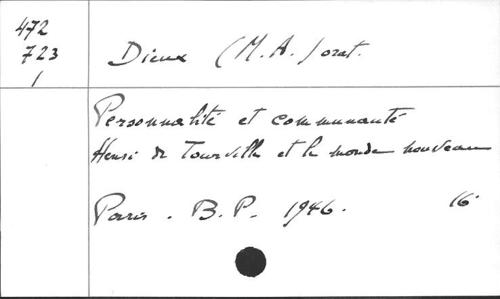 472
723
1
Dieux (M.A.) orat.
Personnalité et communauté
Henri de Tourville et le monde nouveau
Paris. B.P. 1946. 16°